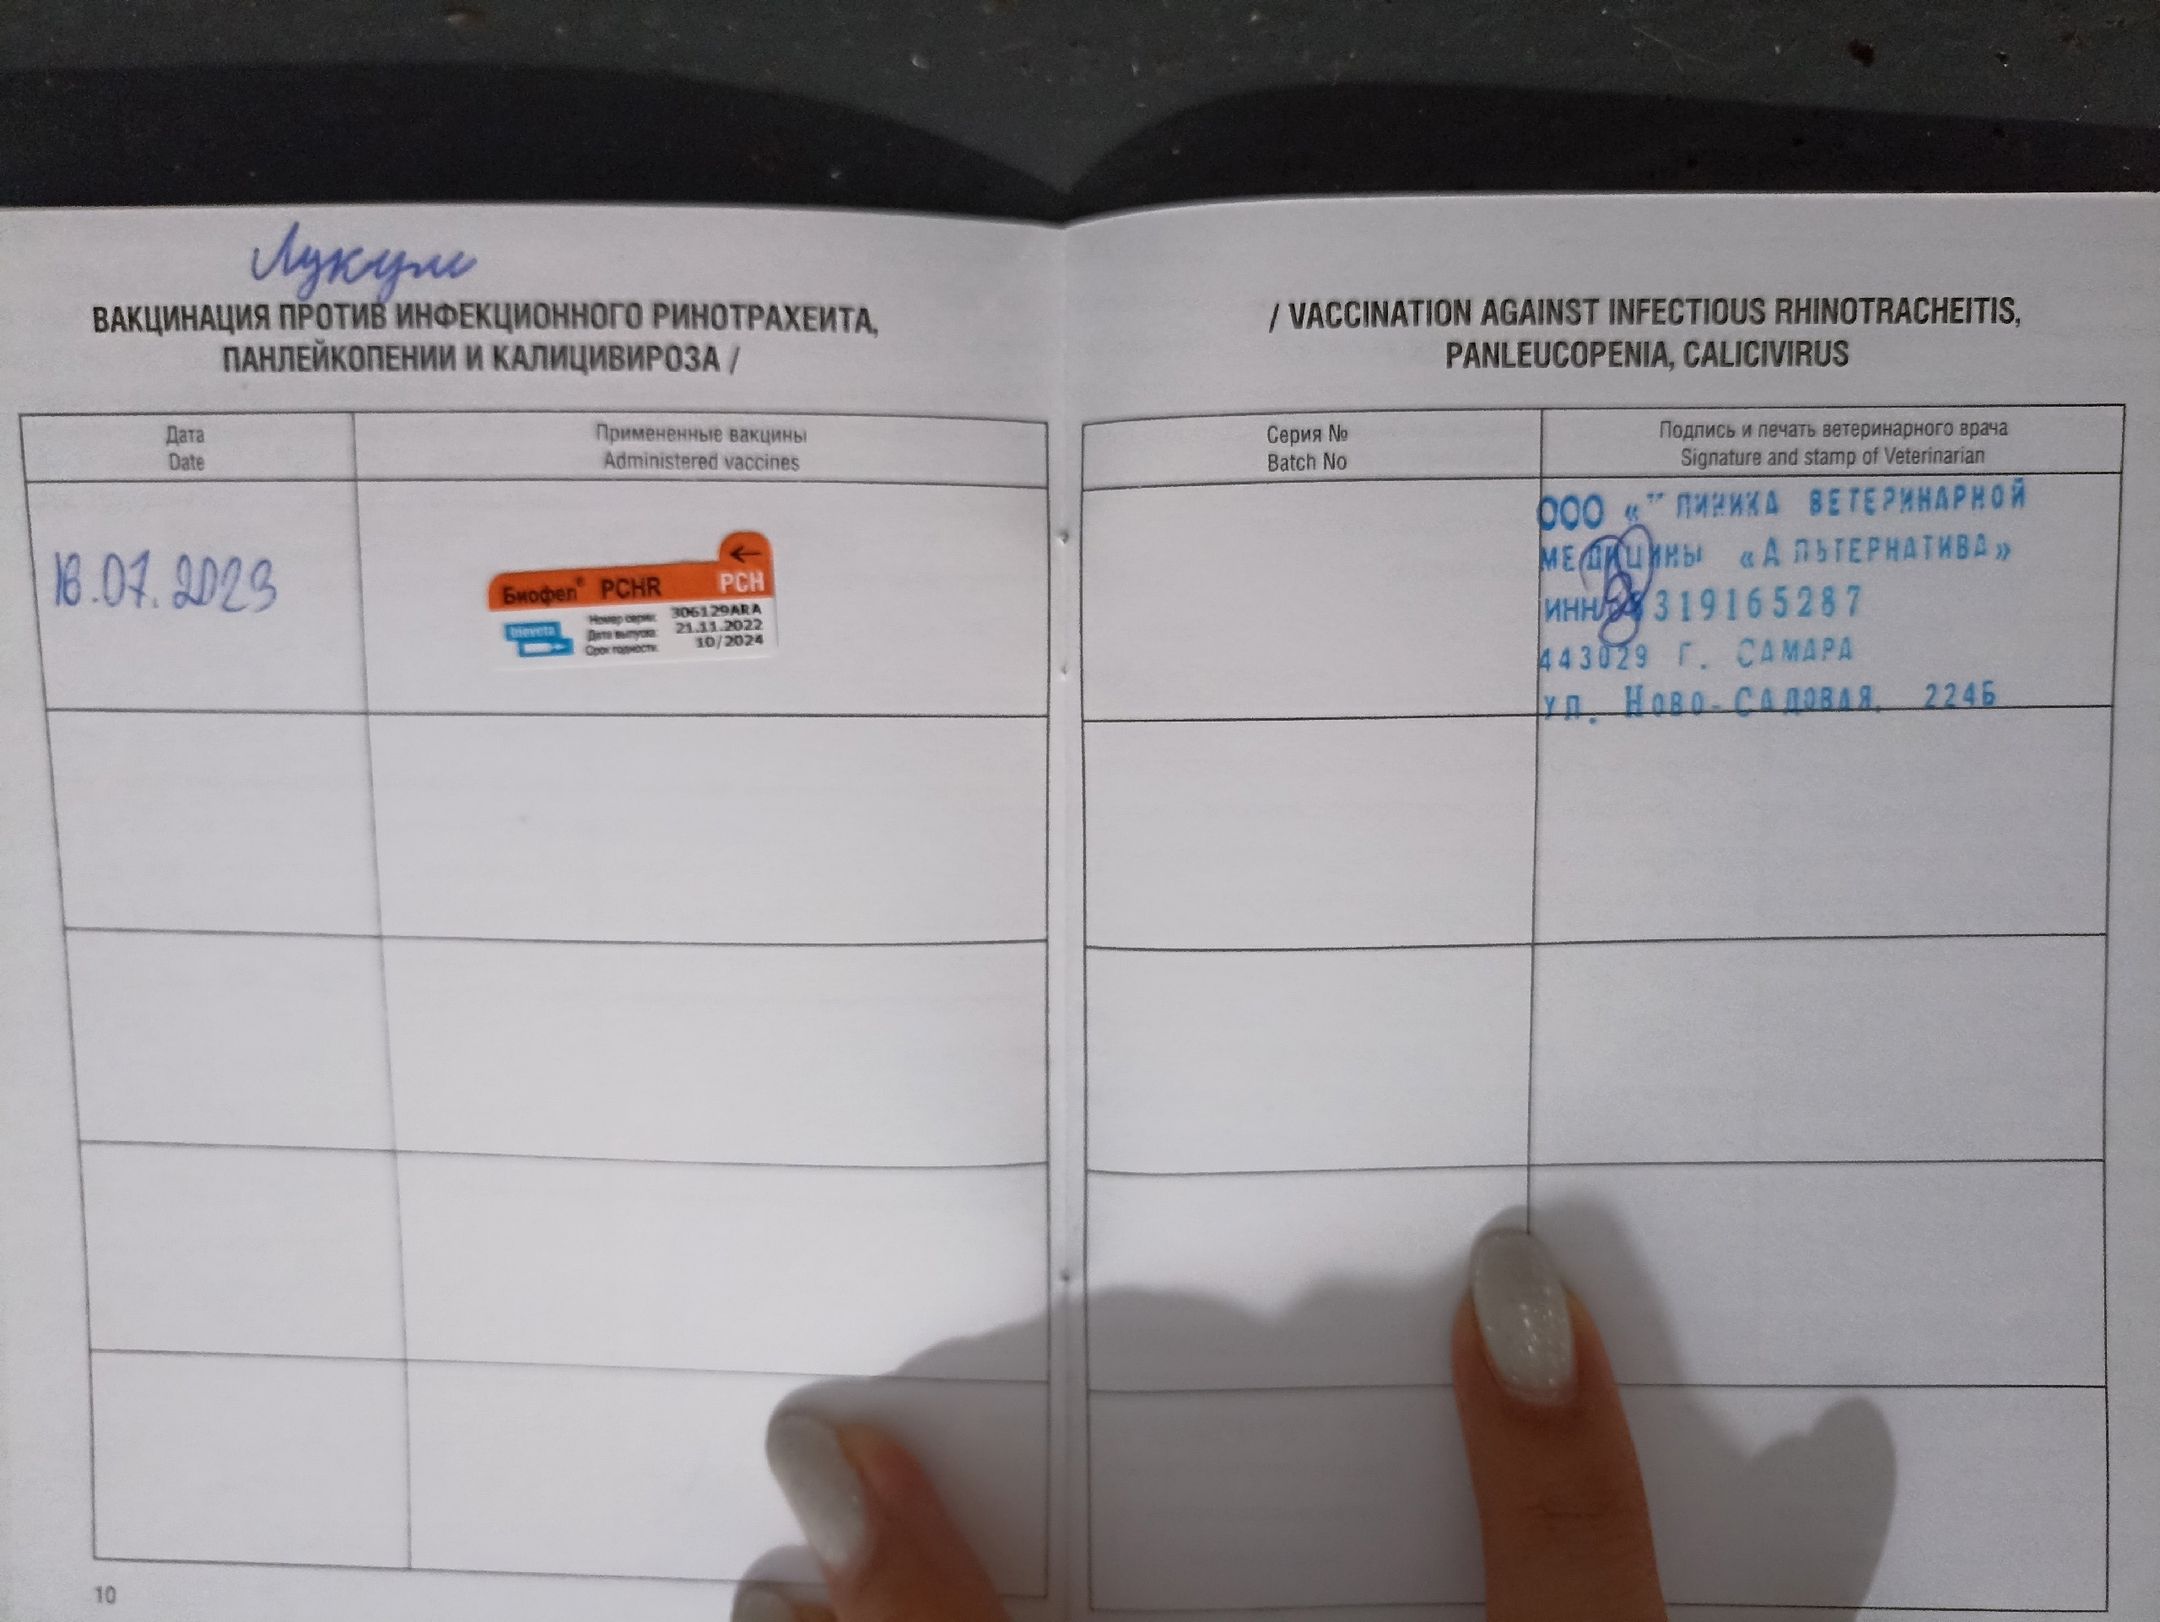 Лукум
ВАКЦИНАЦИЯ ПРОТИВ ИНФЕКЦИОННОГО РИНОТРАХЕИТА,
ПАНЛЕЙКОПЕНИИ И КАЛИЦИВИРОЗА /
/ VACCINATION AGAINST INFECTIOUS RHINOTRACHEITIS,
PANLEUCOPENIA, CALICIVIRUS
Дата
Date
Примененные вакцины
Administered vaccines
Серия №
Batch No
Подпись и печать ветеринарного врача
Signature and stamp of Veterinarian
.07.2023
Биофел® PCHR PCH
Номер серии: 306129ARA
Дата выпуска: 21.11.2022
Срок годности: 10/2024
bioveta
ООО « ЛИНИКА ВЕТЕРИНАРНОЙ
МЕДИЦИНЫ «АЛЬТЕРНАТИВА»
ИНН 319165287
443029 Г. САМАРА
УЛ. НОВО-САДОВАЯ, 224Б
10